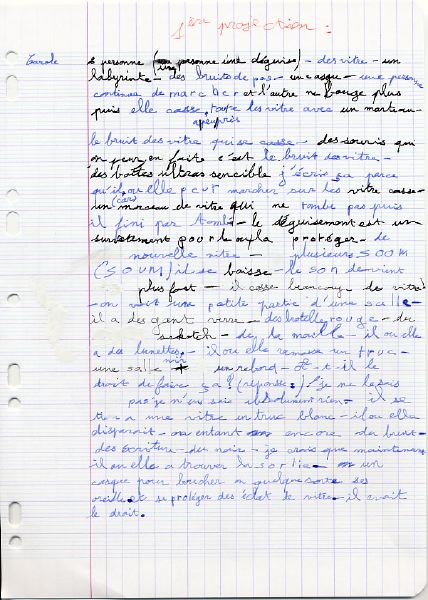 1ère projection :
Carole
2 personne (ou personne une déguisé) - des vitre - un
labyrinte - des bruits de pas - un casque - une personne
continue de marcher et l'autre ne bouge plus
puis elle casse toute les vitre avec un marteau -
apeuprès
le bruit des vitre qui se casse - des souris qui
on peur en faite c'est le bruit des vitre -
des bottes ultras sencible j'écris ça parce
qu'il ou elle peut marcher sur les vitre casse -
(car)
un morceau de vitre qui ne tombe pas puis
il fini par tombé - le déguisement est un
survetement pour le protéger - de
nouvelle vitre - plusieurs ZOOM
(ZOUM) il se baisse - le son devient
plus fort - il casse beaucoup de vitre
- on voit une petite partie d'une salle -
il a des gant verre - des botelle rouge - du
scotch - de la maille - il ou elle
a des lunettes - il ou elle ramasse un truc -
une salle noir un rebord - A-t-il le
droit de faire ça ? (réponse :) je ne le sais
pas je n'en sais absolument rien - il se
tien a une vitre un truc blanc - il ou elle
disparait - on entant encore du bruit -
des écriture - du noir - je crois que maintenant
il ou elle a trouver la sortie - un
casque pour boucher en quelque sorte ses
oreille et se protéger des éclat de vitre - il avait
le droit.